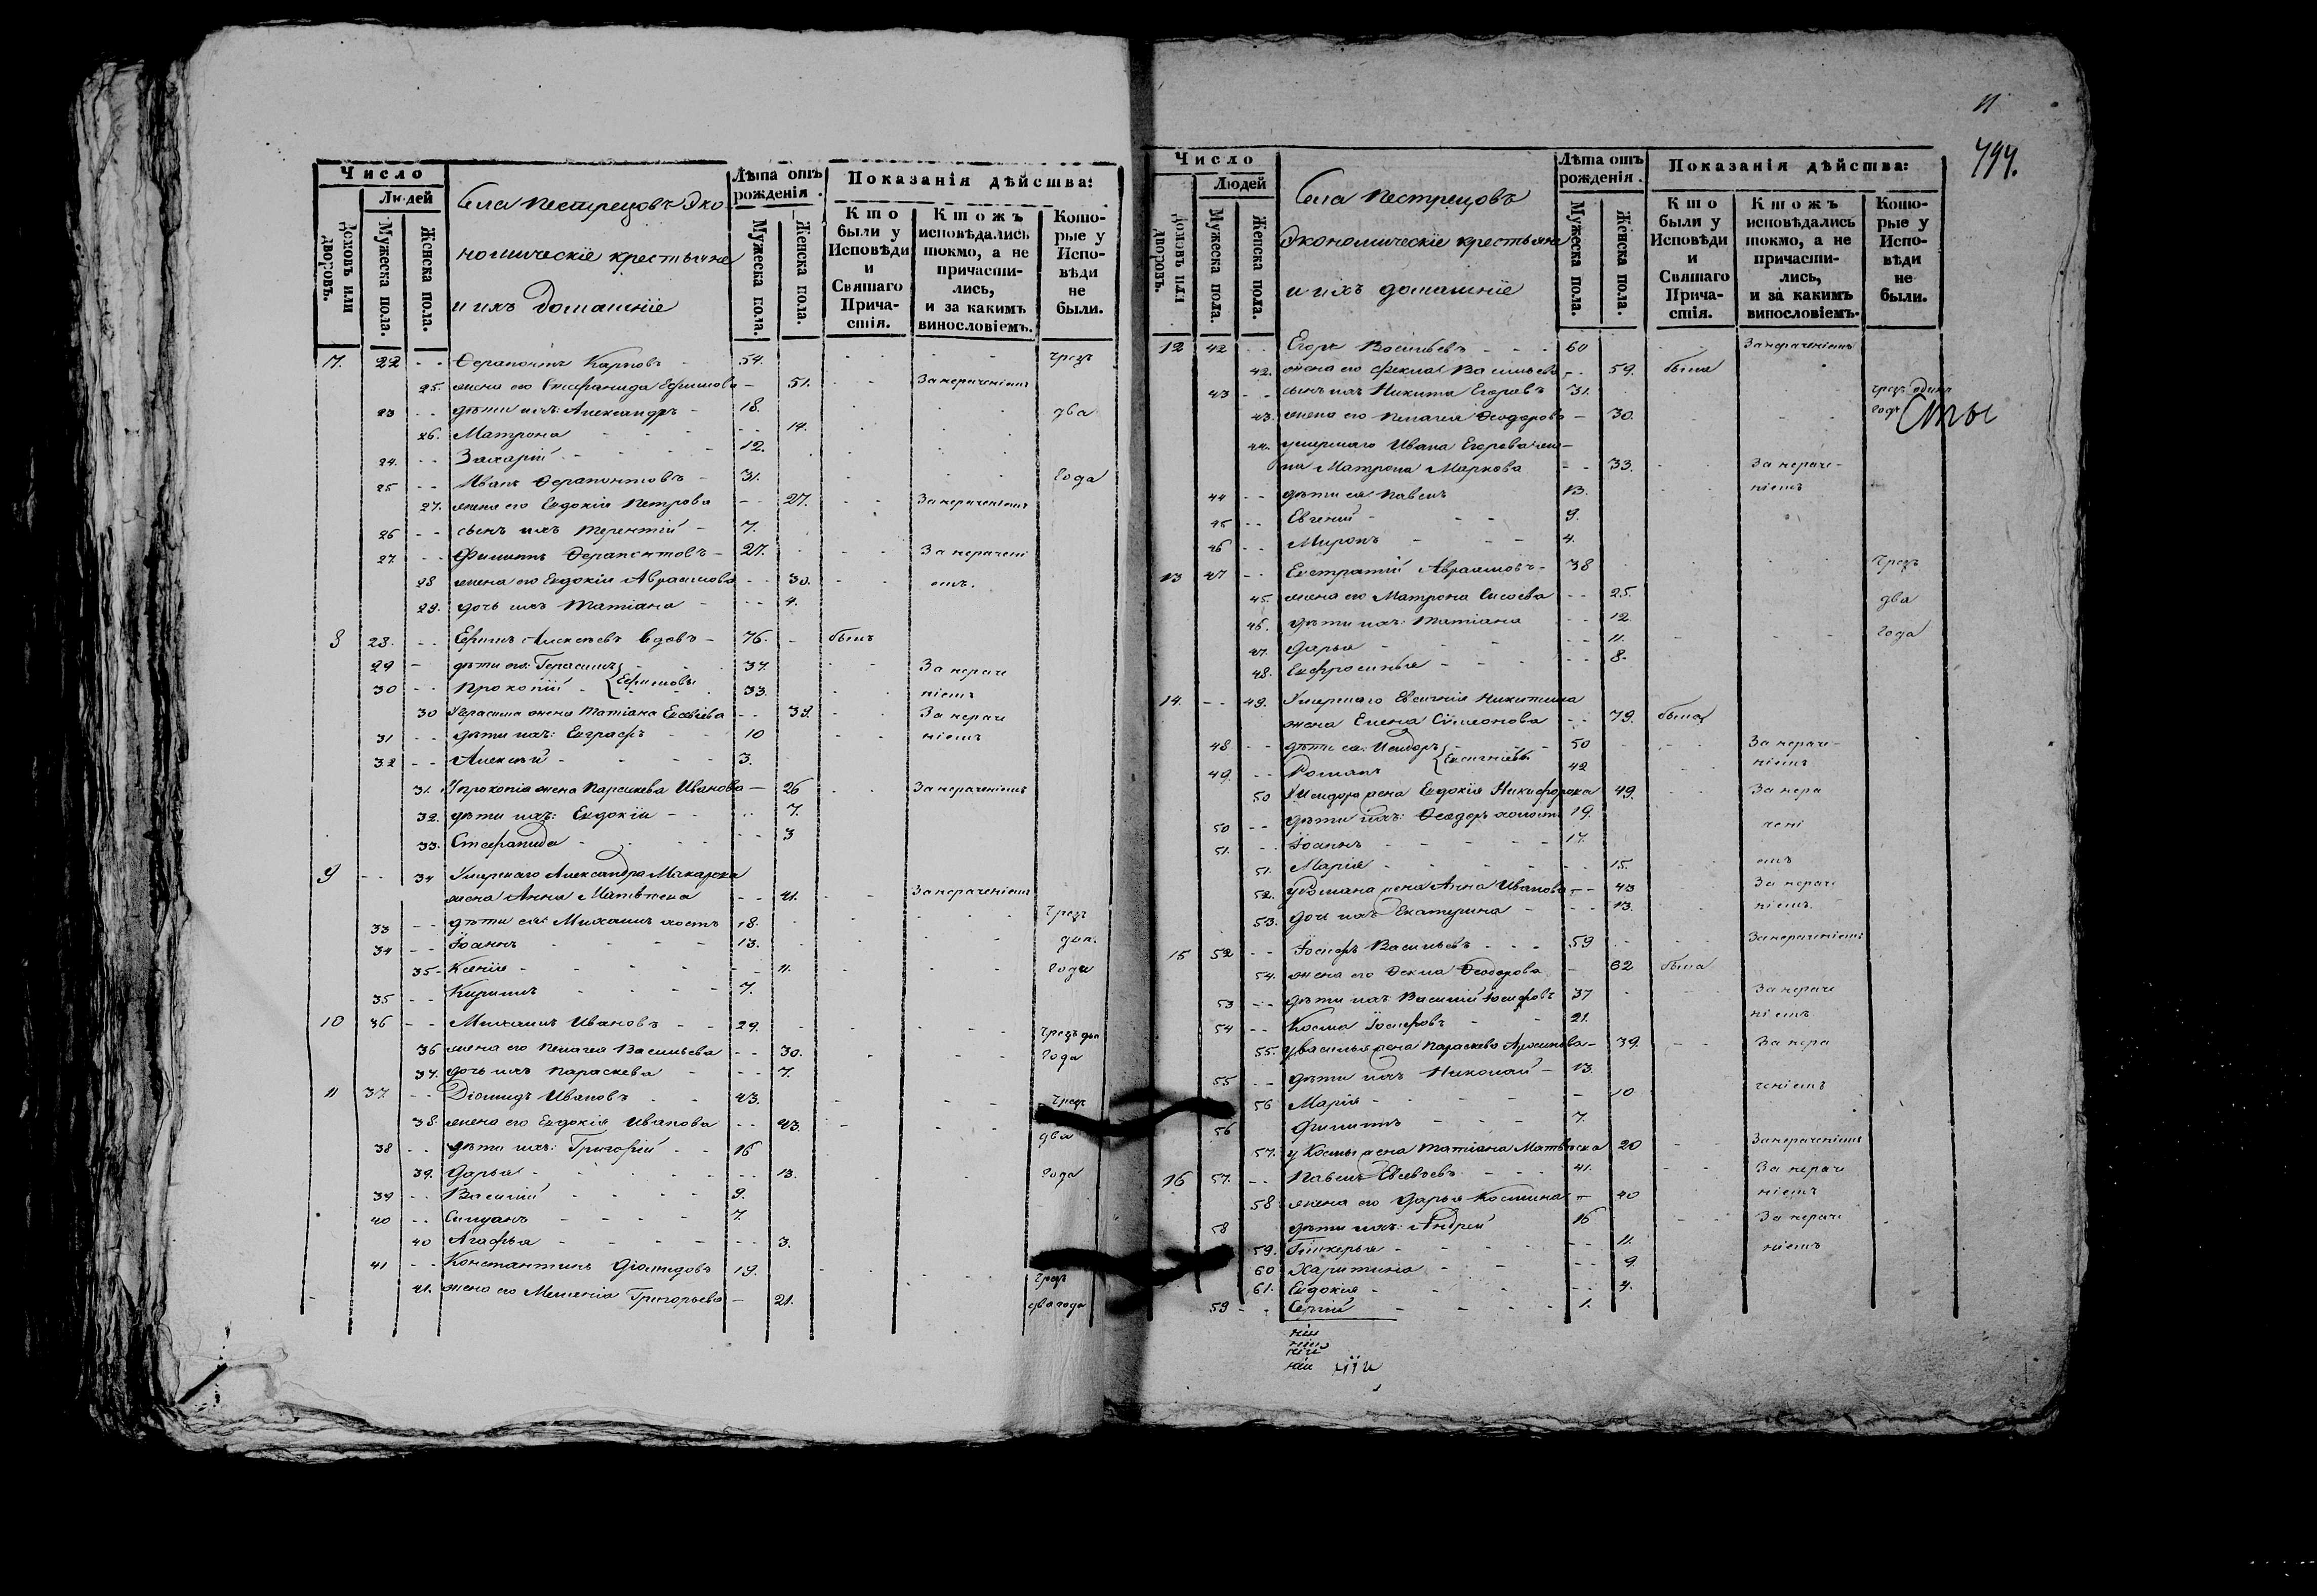 Число
Людей
домовъ или дворовъ.
Мужеска пола.
Женска пола.
Села Пестрецовъ Эко-
номическіе крестьяне
и ихъ домашніе
Лѣта отъ рожденія.
Мужеска пола.
Женска пола.
Показанія дѣйства:
Кто были у Исповѣди и Святаго Прича-стія.
Ктожъ исповѣдались токмо, а не причасти-лись, и за какимъ винословіемъ.
Кото-рые у Испо-вѣди не были.
7. 22 - - Ѳерапонтъ Карповъ 54. чрезъ
25. жена его Стефанида Ефимова - 51. За нераченіемъ
23 - - дѣти ихъ: Александръ - 18. два
26. Матрона - - 14.
24. - - Захарій - 12.
25 - - Иванъ Ѳерапонтовъ - 31. года
27. жена его Евдокія Петрова - - 27. За нераченіемъ
26 - - сынъ ихъ Терентій - 7.
27. - - Филиппъ Ѳерапонтовъ - 27. За нерачені
28 жена его Евдокія Авраамова - - 30. емъ.
29. дочь ихъ Татіана - - - 4.
8 28. - - Ефимъ Алексѣевъ вдовъ - 76. - былъ
29 - дѣти его: Герасимъ 37. За нераче
30 - - Прокопій - Ефимовы 33. ніемъ
30 Герасима жена Татіана Евсѣева - - 39. За нераче
31 - - дѣти ихъ: Евграфъ 10 ніемъ
32 - - Алексѣй - - - 3.
31. У Прокопія жена Параскева Иванова - 26 За нераченіемъ
32. дѣти ихъ: Евдокія - - 7.
33. Стефанида - - - 3
9 - - 34 Умершаго Александра Макарова
жена Анна Матвѣева - - 41. За нераченіемъ
33 - - дѣти ея: Михаилъ холостъ 18. чрезъ
34 - - Іоаннъ - - - 13. два
35 - Ксенія - - - 11. года
35 - - Кириллъ - - - 7.
10 36 - - Михаилъ Ивановъ - - 29. чрезъ два
36 жена его Пелагея Васильева - - 30. года
37. дочь ихъ Параскева - - - 7.
11 37 - - Діомидъ Ивановъ - - 43. чрезъ
38. жена его Евдокія Иванова - - 43. два
38 - - дѣти ихъ: Григорій - - 16
39. Дарья - - - 13. года
39 - - Василій - - 9.
40 - - Симеонъ - - - 7.
40 Агафья - - - 3.
41 - - Константинъ Діомидовъ 19. чрезъ
41. жена его Меланія Григорьева - 21. два года
11
799.
Число
Людей
домовъ или дворовъ.
Мужеска пола.
Женска пола.
Села Пестрецовъ
Экономическіе крестьяне
и ихъ домашніе
Лѣта отъ рожденія.
Мужеска пола.
Женска пола.
Показанія дѣйства:
Кто были у Исповѣди и Святаго Прича-стія.
Ктожъ исповѣдались токмо, а не причасти-лись, и за какимъ винословіемъ.
Кото-рые у Испо-вѣди не были.
12 42 - - Егоръ Васильевъ - - 60 За нераченіемъ
42. жена его Ѳекла Васильева - 59. была
43 - - сынъ ихъ Никита Егоровъ 31. чрезъ одинъ
43. жена его Пелагея Ѳеодорова - 30. годъ
44. умершаго Ивана Егорова же-
на Матрона Маркова - - 33. За нераче-
44 - - дѣти ея: Павелъ 13. ніемъ
45 - - Евгеній - - - 9.
46 - - Миронъ - - - 4.
13 47 - - Евстратій Авраамовъ - 38 чрезъ
45. жена его Матрона Сысоева - - 25. два
46. дѣти ихъ: Татіана - - 12 года
47. Дарья - - - 11.
48. Евфросинья - - - 8.
14. - - 49. Умершаго Евсигнія Никитина
жена Елена Симеонова - - 79. была
48 - - дѣти ея: Исидоръ - - 50 За нераче-
49. - - Романъ Евсигніевы 42 ніемъ
50 У Исидора жена Евдокія Никифорова 49. За нера
50 - - дѣти ихъ: Ѳеодоръ холостъ 19. чені
51. - - Іоаннъ - - - 17. емъ
51. Марія - - - 15.
52. у Романа жена Анна Иванова - - 43 За нераче
53. дочь ихъ Екатерина - - - 13. ніемъ.
15 52 - - Іосифъ Васильевъ - - - 59 За нераченіемъ
54. жена его Ѳекла Ѳеодорова - 62 была
53 - - дѣти ихъ Василій Іосифовъ 37 За нераче
54 - - Косма Іосифовъ - - 21. ніемъ
55. у Василья жена Параскева - 39. За нера
55 - - дѣти ихъ Николай - 13. ченіемъ
56 Марія - - - 10
56 Филиппъ - - - 7.
57. у Космы жена Татіана Матвѣева 20 За нераченіемъ
16 57. - - Павелъ Евсѣевъ - - - 41. За нераче
58 жена его Дарья Космина - 40 ніемъ
58 дѣти ихъ: Андрей 16 За нераче
59. Гликерья - - - 11. ніемъ
60 Харитина - - - 9.
61. Евдокія - - - 4.
59 - - Сергій - - - 1.